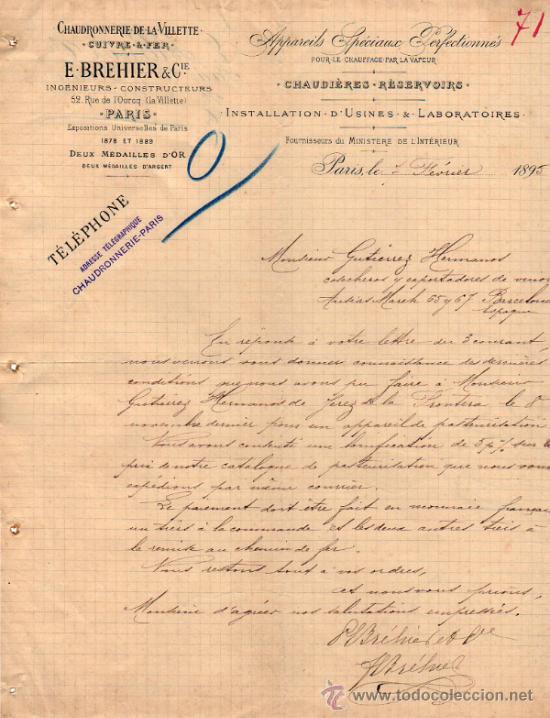 CHAUDRONNERIE DE LA VILLETTE
CUIVRE & FER
E. BREHIER & CIE
INGENIEURS - CONSTRUCTEURS
52, Rue de l'Ourcq (la Villette)
PARIS
Expositions Universelles de Paris
1878 ET 1889
DEUX MÉDAILLES D'OR
DEUX MÉDAILLES D'ARGENT
Appareils Spéciaux Perfectionnés
71
POUR LE CHAUFFAGE PAR LA VAPEUR
CHAUDIÈRES - RÉSERVOIRS
INSTALLATION D'USINES & LABORATOIRES
Fournisseurs du MINISTERE DE L'INTÉRIEUR
Paris, le Février 1895
TÉLÉPHONE
ADRESSE TÉLÉGRAPHIQUE
CHAUDRONNERIE-PARIS
Monsieur Gutierrez Hermanos
cosecheros y exportadores de vinos
Ausias March 55 y 67 Barcelona
Espagne
En réponse à votre lettre du 3 courant,
nous venons vous donner connaissance les dernières
conditions que nous avons pu faire à Monsieur
Gutierrez Hermanos de Jerez de la Frontera le 8
novembre dernier pour un appareil de pasteurisation.
Nous avons une bonification de 5 p % sur le
prix de notre catalogue de pasteurisation que nous vous
expédions par même courrier.
Le paiement doit être fait en monnaie française
un tiers à la commande et les deux autres tiers à
la remise au chemin de fer.
Nous restons tout à vos ordres,
et nous vous prions,
Monsieur d'agréer nos salutations empressées.
E Bréhier et Cie
Bréhier
todocoleccion
© www.todocoleccion.net